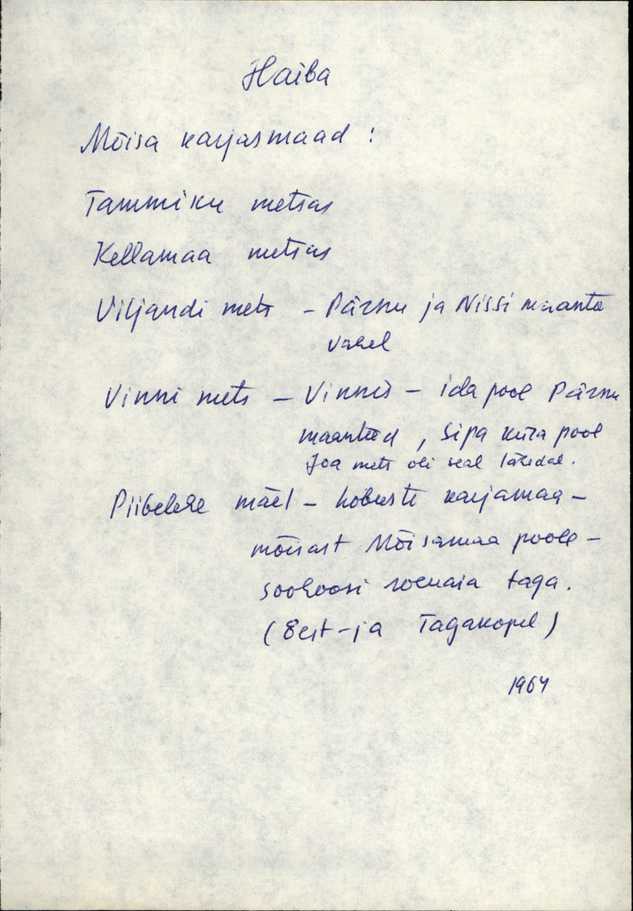 Haiba
Mõisa karjasmaad :
Tammiku metsas
Kellamaa metsas
Viljandi mets – Pärnu ja Nissi maante
vahel
Vinni mets – Vinnis – ida pool Pärnu
maanteed , Sipa küla pool
Joa mets oli seal lähedal.
Piibelehe mäel – hobuste karjamaa –
mõisast Mõisamaa poole –
soohoosi taga.
( Eest-ja Tagakopel )
1964